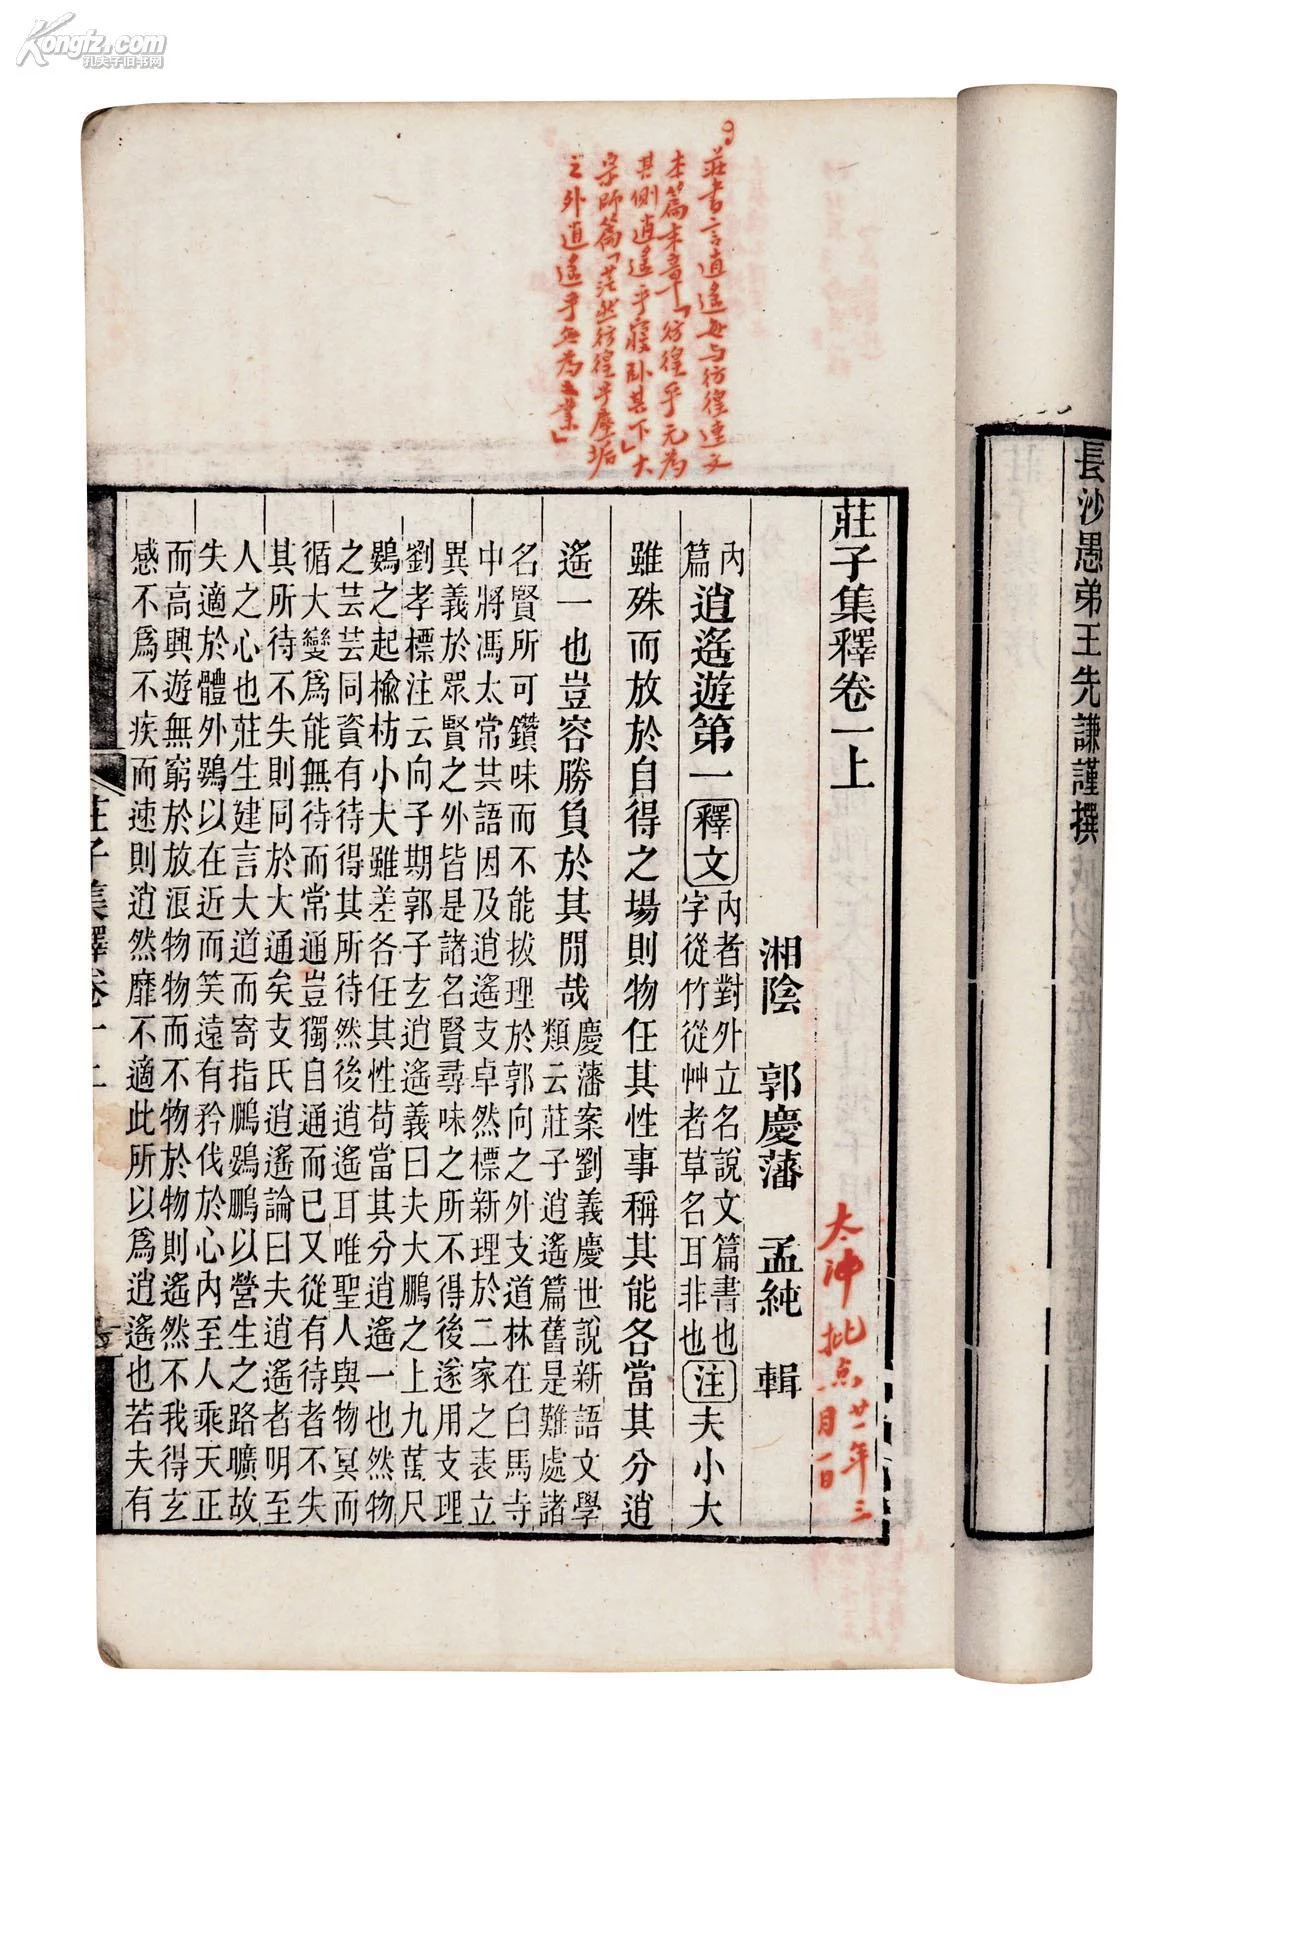 Kongfz.com
孔夫子旧书网
長沙愚弟王先謙謹撰
莊書言逍遙每与彷徨連文
本篇末章「彷徨乎无為
其側逍遙乎寢臥其下」大
宗師篇「茫然彷徨乎塵垢
之外逍遙乎無為之業」
莊子集釋卷一上
太沖批点廿一年三
月一日
湘陰 郭慶藩 孟純 輯
內篇逍遙遊第一釋文內者對外立名說文篇書也字從竹從艸者草名耳非也注夫小大
雖殊而放於自得之場則物任其性事稱其能各當其分逍
遙一也豈容勝負於其閒哉慶藩案劉義慶世說新語文學類云莊子逍遙篇舊是難處諸
名賢所可鑽味而不能拔理於郭向之外支道林在白馬寺
中將馮太常共語因及逍遙支卓然標新理於二家之表立
異義於眾賢之外皆是諸名賢尋味之所不得後遂用支理
劉孝標注云向子期郭子玄逍遙義曰夫大鵬之上九萬尺
鷃之起榆枋小大雖差各任其性苟當其分逍遙一也然物
之芸芸同資有待得其所待然後逍遙耳唯聖人與物冥而
循大變爲能無待而常通豈獨自通而已又從有待者不失
其所待不失則同於大通矣支氏逍遙論曰夫逍遙者明至
人之心也莊生建言大道而寄指鵬鷃鵬以營生之路曠故
失適於體外鷃以在近而笑遠有矜伐於心內至人乘天正
而高興遊無窮於放浪物物而不物於物則遙然不我得玄
感不爲不疾而速則逍然靡不適此所以爲逍遙也若夫有
莊子集釋卷一上